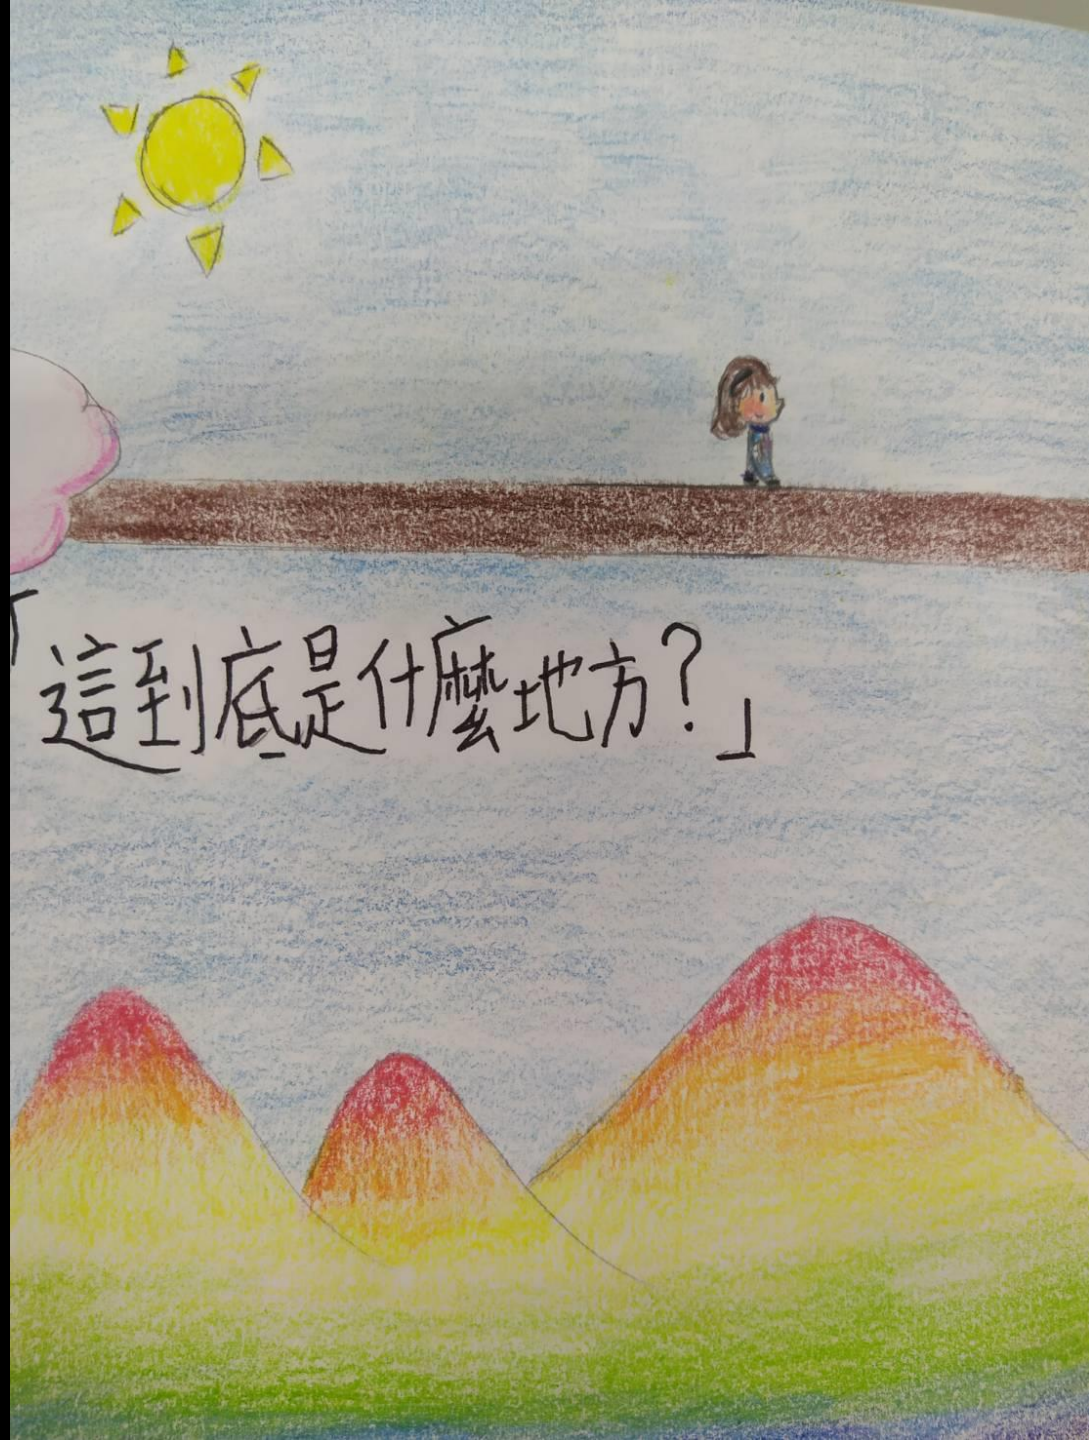 「這到底是什麼地方?」